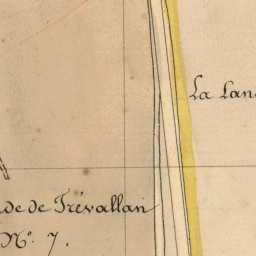 La Lan
de de Trévallan
Nº. 7.